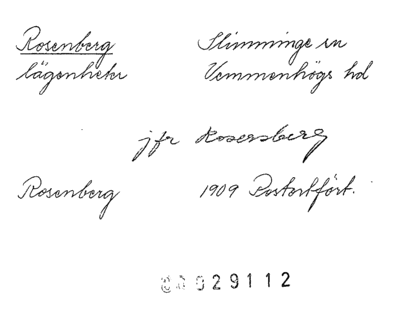 Rosenberg Slimminge sn
lägenheter Vemmenhögs hd
jfr Rosersberg
Rosenberg 1909 Postortfört.
29112